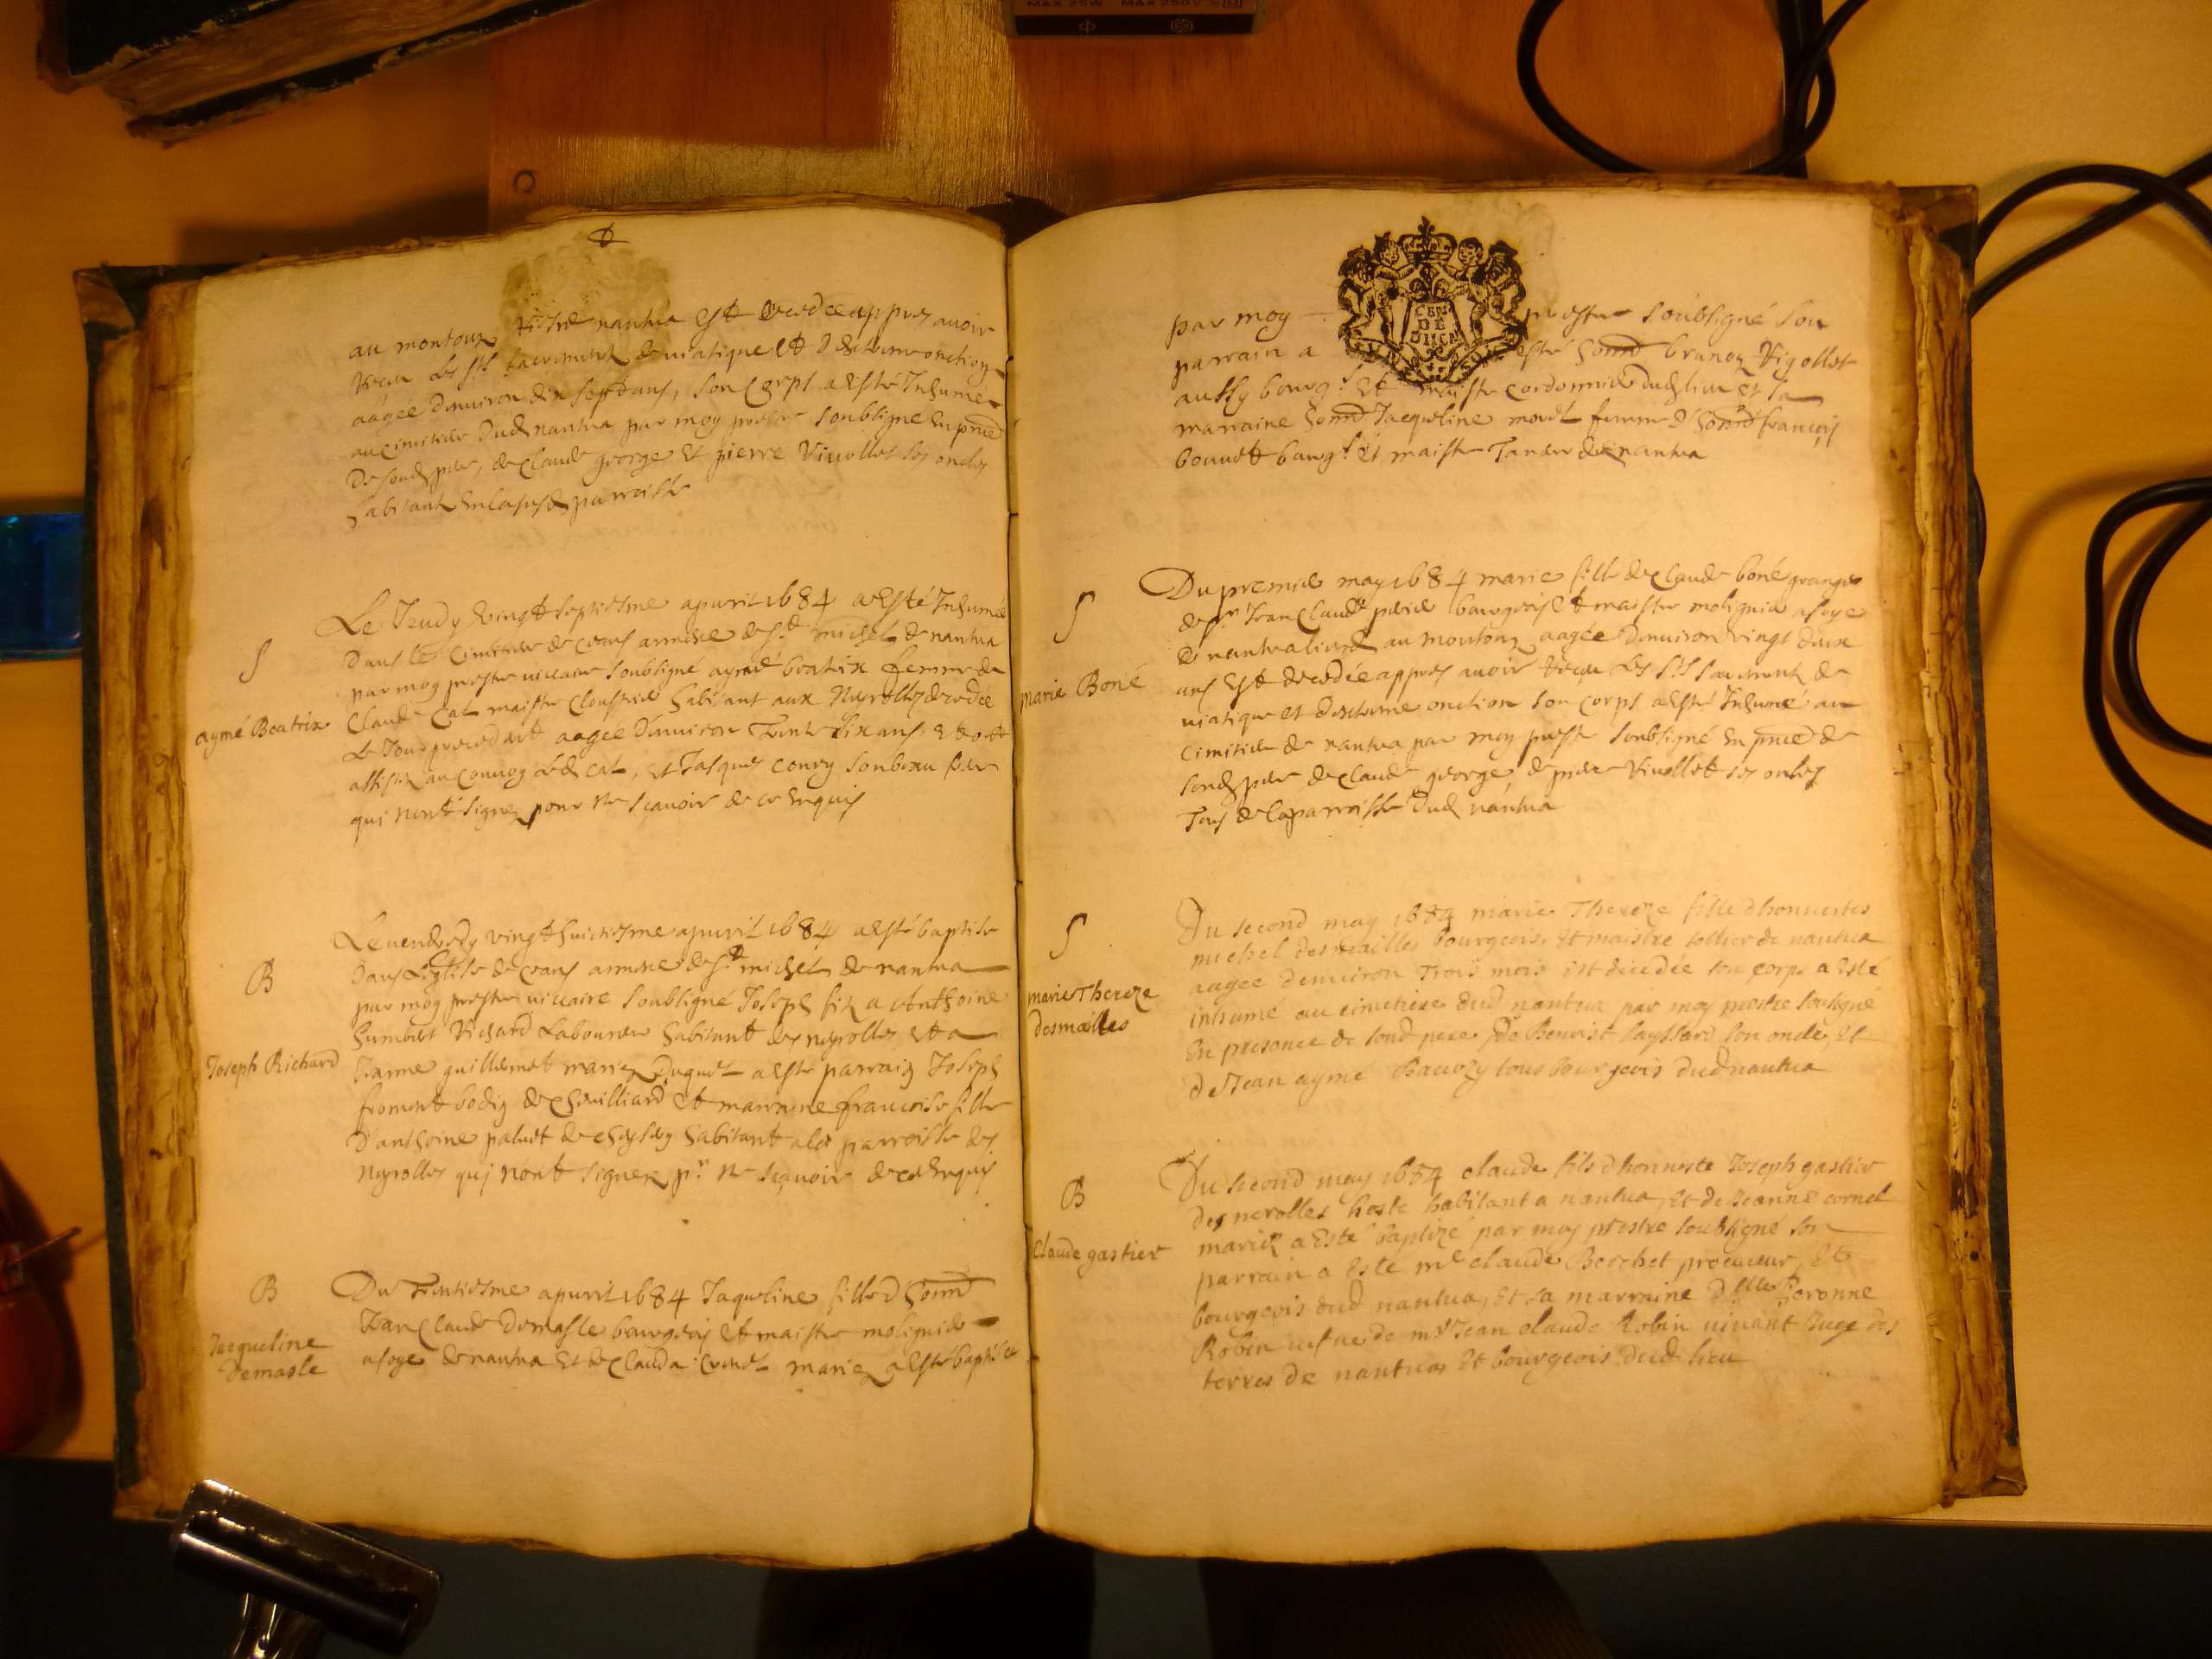 MAX 75W MAX 250V
au montoux rière nantua est decedée appres avoir
receu les sts sacrements de viatique et d'extreme onction
aagée denuiron dix sept ans, son corps a esté Inhumé
au cimitiere dud nantua par moy prestre soubsigne En pnce
de soud pere, de claude george et pierre Viuollet ses oncles
habitants En lasusd parroisse
S
aymé Beatrix
Le Jeudy vingt septiesme apuril 1684 a esté Inhumée
dans le cimitiere de ceans annexe de st michel de nantua
par moy prestre viccaire soubsigné aymé beatrix femme de
Claude Cat maistre cloustrier habitant aux Neyrolles decedée
le Jour precedant aagée denuiron Trente six ans Et ont
assistez au conuoy led Cat, et Jasques coury son beau frere
qui n'ont signez pour ne scauoir de ce Enquis
B
Joseph Richard
Le vendredy vingt huictiesme apuril 1684 a esté baptisé
dans L'eglise de ceans annexe de st michel de nantua
par moy prestre viccaire soubsigné Joseph fiz a Anthoine
humbert Richard Laboureur habitant des neyrolles et a
Jeanne guillermet mariez Duquel a esté parrain Joseph
froment bodin de cheuilliard et marraine francoise fille
d'anthoine paluet de habitant a la parroisse des
Neyrolles qui n'ont signez pr ne scauoir de ce Enquis
B
Jacqueline
Demasle
Du Trentiesme apuril 1684 Jaqueline fille d honn
Jean Claude Demasle bourgeois et maistre molignier
a soye de nantua et de Clauda mariez a esté baptisée
par moy prestre soubsigné son
CEN
DE
DIJCN
parrain a esté honn brunoz Vigollet
aussy bourgs et maistre cordonnier dud lieu et sa
marraine honn Jacqueline morel femme d honn francois
bouuet bourgs et maistre Taneur de nantua
S
marie Boné
Du premier may 1684 marie fille de claude boné granger
de sr Jean Claude bourgeois et maistre molignier a soye
de nantua au montoux aagée denuiron vingt deux
ans est decedée appres auoir receu les sts sacrements de
viatique et dextreme onction son corps a esté Inhumé au
cimitiere de nantua par moy prestre soubsigné En pnce de
soud pere de claude george de pierre Viuollet ses oncles
Tous de la parroisse dud nantua
S
marie Thereze
desmailles
Du second may 1684 marie Thereze fille dhonnestes
michel des mailles bourgeois, et maistre sellier de nantua
aagee denuiron Trois mois est decedée son corps a Esté
inhumé au cimetiere dud nantua par moy prestre soubsigné
En presence de soud pere, de Benoist sayssard son oncle, Et
de Jean aymé Baudy tous bourgeois dud nantua
B
claude gastier
Du second may 1684 claude fils dhonneste Joseph gastier
des nerolles hoste habitant a nantua, Et de Jeanne cornel
mariez a Esté baptizé par moy prestre soubsigné son
parrain a Esté me claude Berchet procureur, Et
bourgeois dud nantua, Et sa marraine dlle Peronne
Robin vefue de mr Jean claude Robin viuant Juge des
terres de nantua Et bourgeois dud lieu